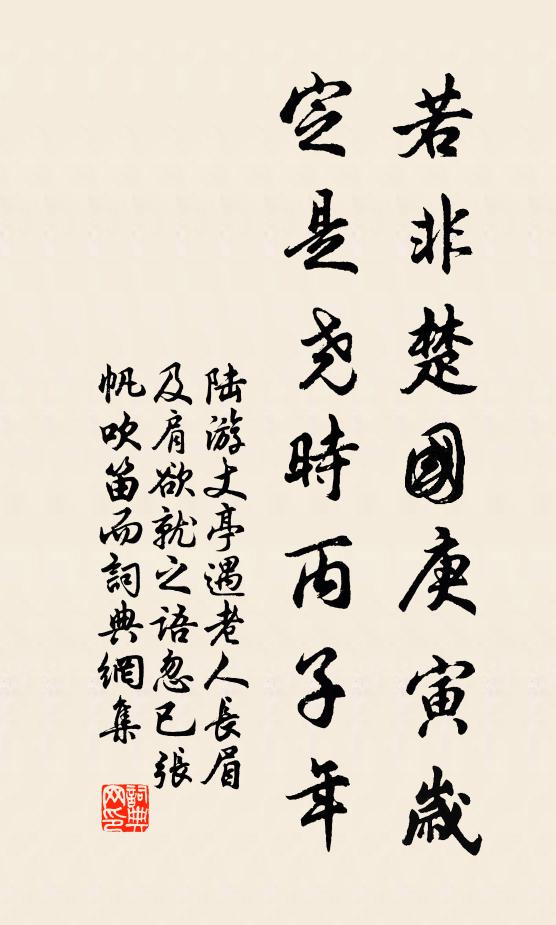 若非楚國庚寅歲
定是堯時丙子年
陆游丈亭遇老人長眉
及肩欲就之語忽已張
帆吹笛而詞典網集
詞典
网印